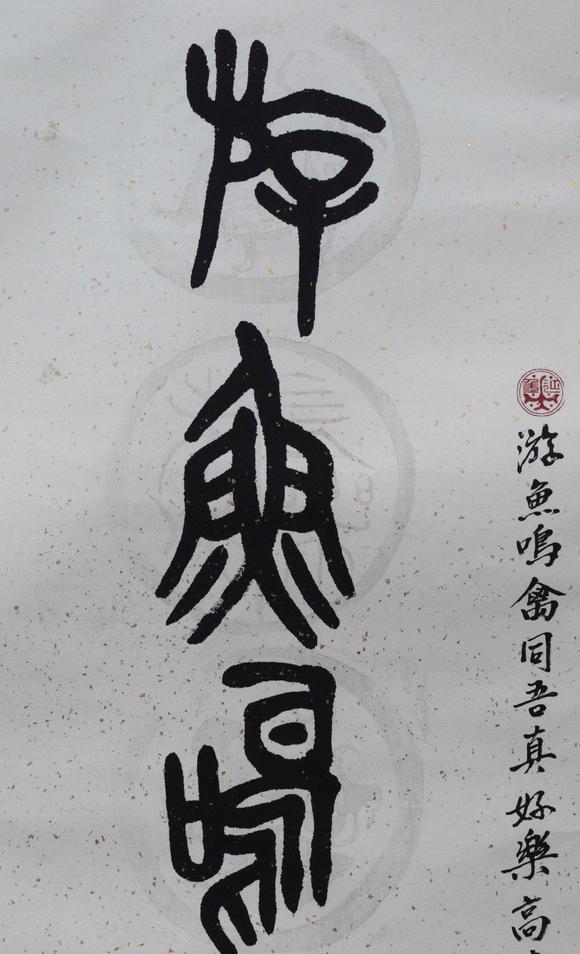 游魚鳴禽同吾真好樂高
游魚鳴